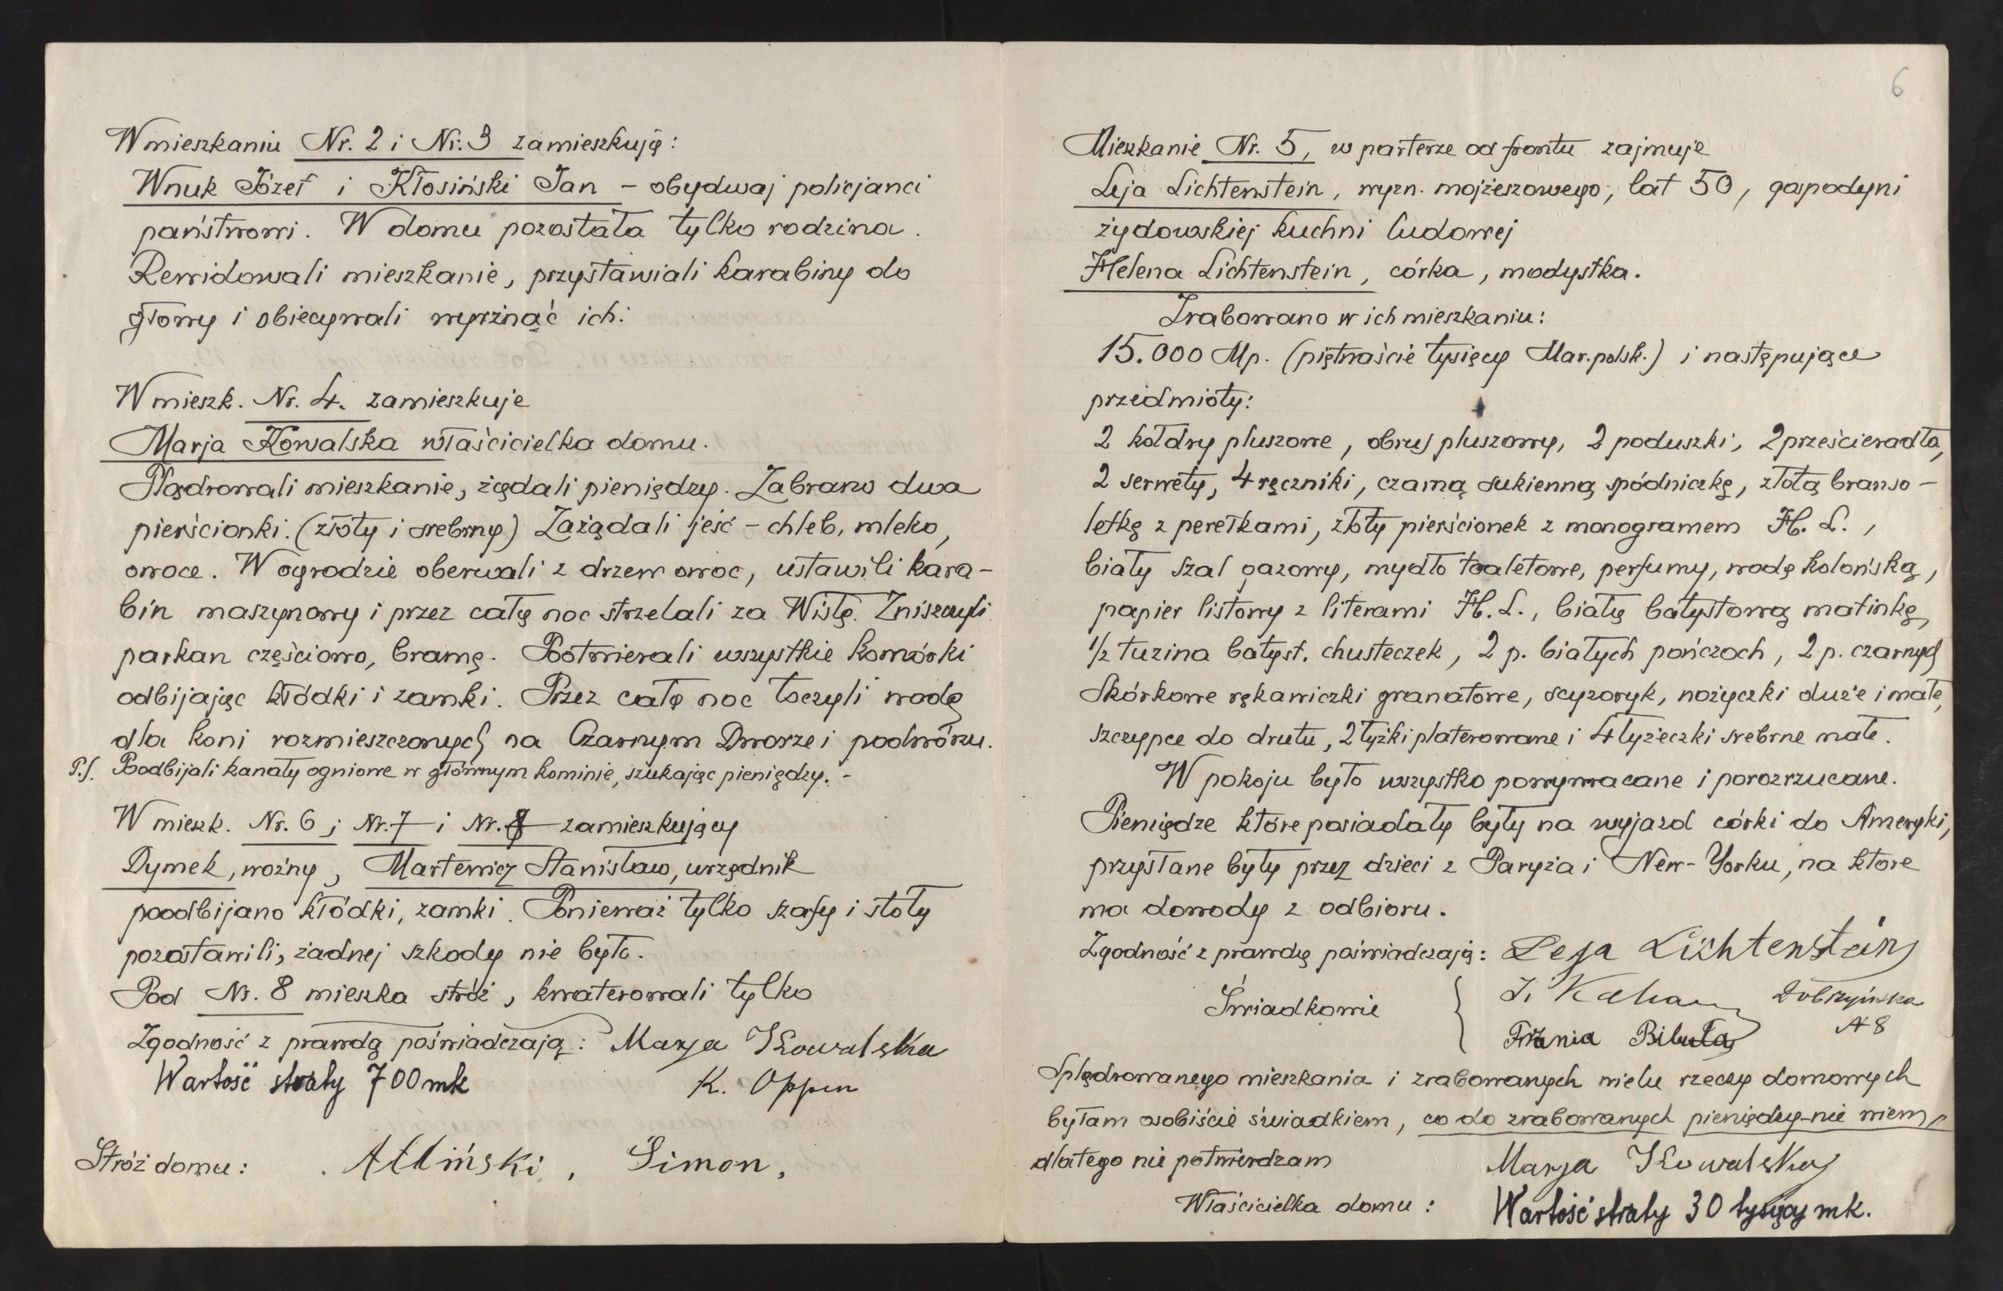 W mieszkaniu Nr. 2 i Nr. 3 zamieszkują:
Wnuk Józef i Kłosiński Jan – obydwaj policjanci
państwowi. W domu pozostała tylko rodzina.
Rewidowali mieszkanie, przystawiali karabiny do
głowy i obiecywali wyrżnąć ich.
W mieszk. Nr. 4. zamieszkuje
Marja Kowalska właścicielka domu.
Plądrowali mieszkanie, żądali pieniędzy. Zabrano dwa
pierścionki. (złoty i srebrny) Zażądali jeść – chleb, mleko,
owoce. W ogrodzie oberwali z drzew owoc, ustawili kara-
bin maszynowy i przez całą noc strzelali za Wisłę. Zniszczyli
parkan częściowo, bramę. Pootwierali wszystkie komórki
odbijając kłódki i zamki. Przez całą noc toczyli wodę
dla koni rozmieszczonych na Czarnym Dworze i podwórzu.
P.S. Poodbijali kanały ogniowe w głównym kominie, szukając pieniędzy. –
W mieszk. Nr. 6, i Nr. 7 i Nr. 8 zamieszkujący
Dymek, woźny, Martewicz Stanisław, urzędnik
poodbijano kłódki, zamki. Ponieważ tylko szafy i stoły
pozostawili, żadnej szkody nie było.
Pod Nr. 8 mieszka stróż, kwaterowali tylko
Zgodność z prawdą poświadczają: Marja Kowalska
Wartość straty 700 mk K. Oppen
Stróż domu: Simon,
6
Mieszkanie Nr. 5, w parterze od frontu zajmuje
Leja Lichtenstein, wyzn. mojżeszowego, lat 50, gospodyni
żydowskiej kuchni ludowej
Helena Lichtenstein, córka, modystka.
Zrabowano w ich mieszkaniu:
15.000 Mp. (piętnaście tysięcy Mar. polsk.) i następujące
przedmioty:
2 kołdry pluszowe, obrus pluszowy, 2 poduszki, 2 prześcieradła,
2 serwety, 4 ręczniki, czarną sukienną spódniczkę, złotą branso-
letkę z perełkami, złoty pierścionek z monogramem H. L.,
biały szal gazowy, mydło toaletowe, perfumy, wodę kolońską,
papier listowy z literami H. L., białą batystową matinkę,
1/2 tuzina batyst. chusteczek, 2 p. białych pończoch, 2 p. czarnych
skórkowe rękawiczki granatowe, scyzoryk, nożyczki duże i małe,
szczypce do drutu, 2 łyżki platerowane i 4 łyżeczki srebrne małe.
W pokoju było wszystko powywracane i porozrzucane.
Pieniądze które posiadały były na wyjazd córki do Ameryki,
przysłane były przez dzieci z Paryża i New-Yorku, na które
ma dowody z odbioru.
Zgodność z prawdą poświadczają: Leja Lichtenstein
Świadkowie J. Kahan Dobrzyńska
Frania Bibuła № 8
Splądrowanego mieszkania i zrabowanych wielu rzeczy domowych
byłam osobiście świadkiem, co do zrabowanych pieniędzy – nie wiem,
dlatego nie potwierdzam Marja Kowalska
Właścicielka domu: Wartość straty 30 tysięcy mk.